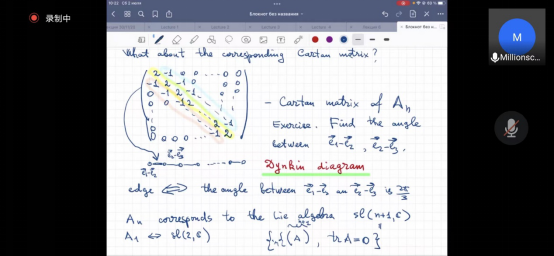 录制中
Блокнот без названия
What about the corresponding Cartan matrix?
2 -1 0 0 ... 0 0
-1 2 -1 0
0 -1 2 -1
0 0 -1 2
2 -1
-1 2
0 0 0 0
- Cartan matrix of Aₙ
Exercise. Find the angle
between e₁-e₂, e₂-e₃.
e₂-e₃
e₁-e₂
Dynkin diagram
edge ⟺ the angle between e₁-e₂ an e₂-e₃ is 2π/3
Aₙ corresponds to the Lie algebra sl(n+1,C)
A₁ ⟺ sl(2,C)
{(A), tr A=0}
M
Millionsc...